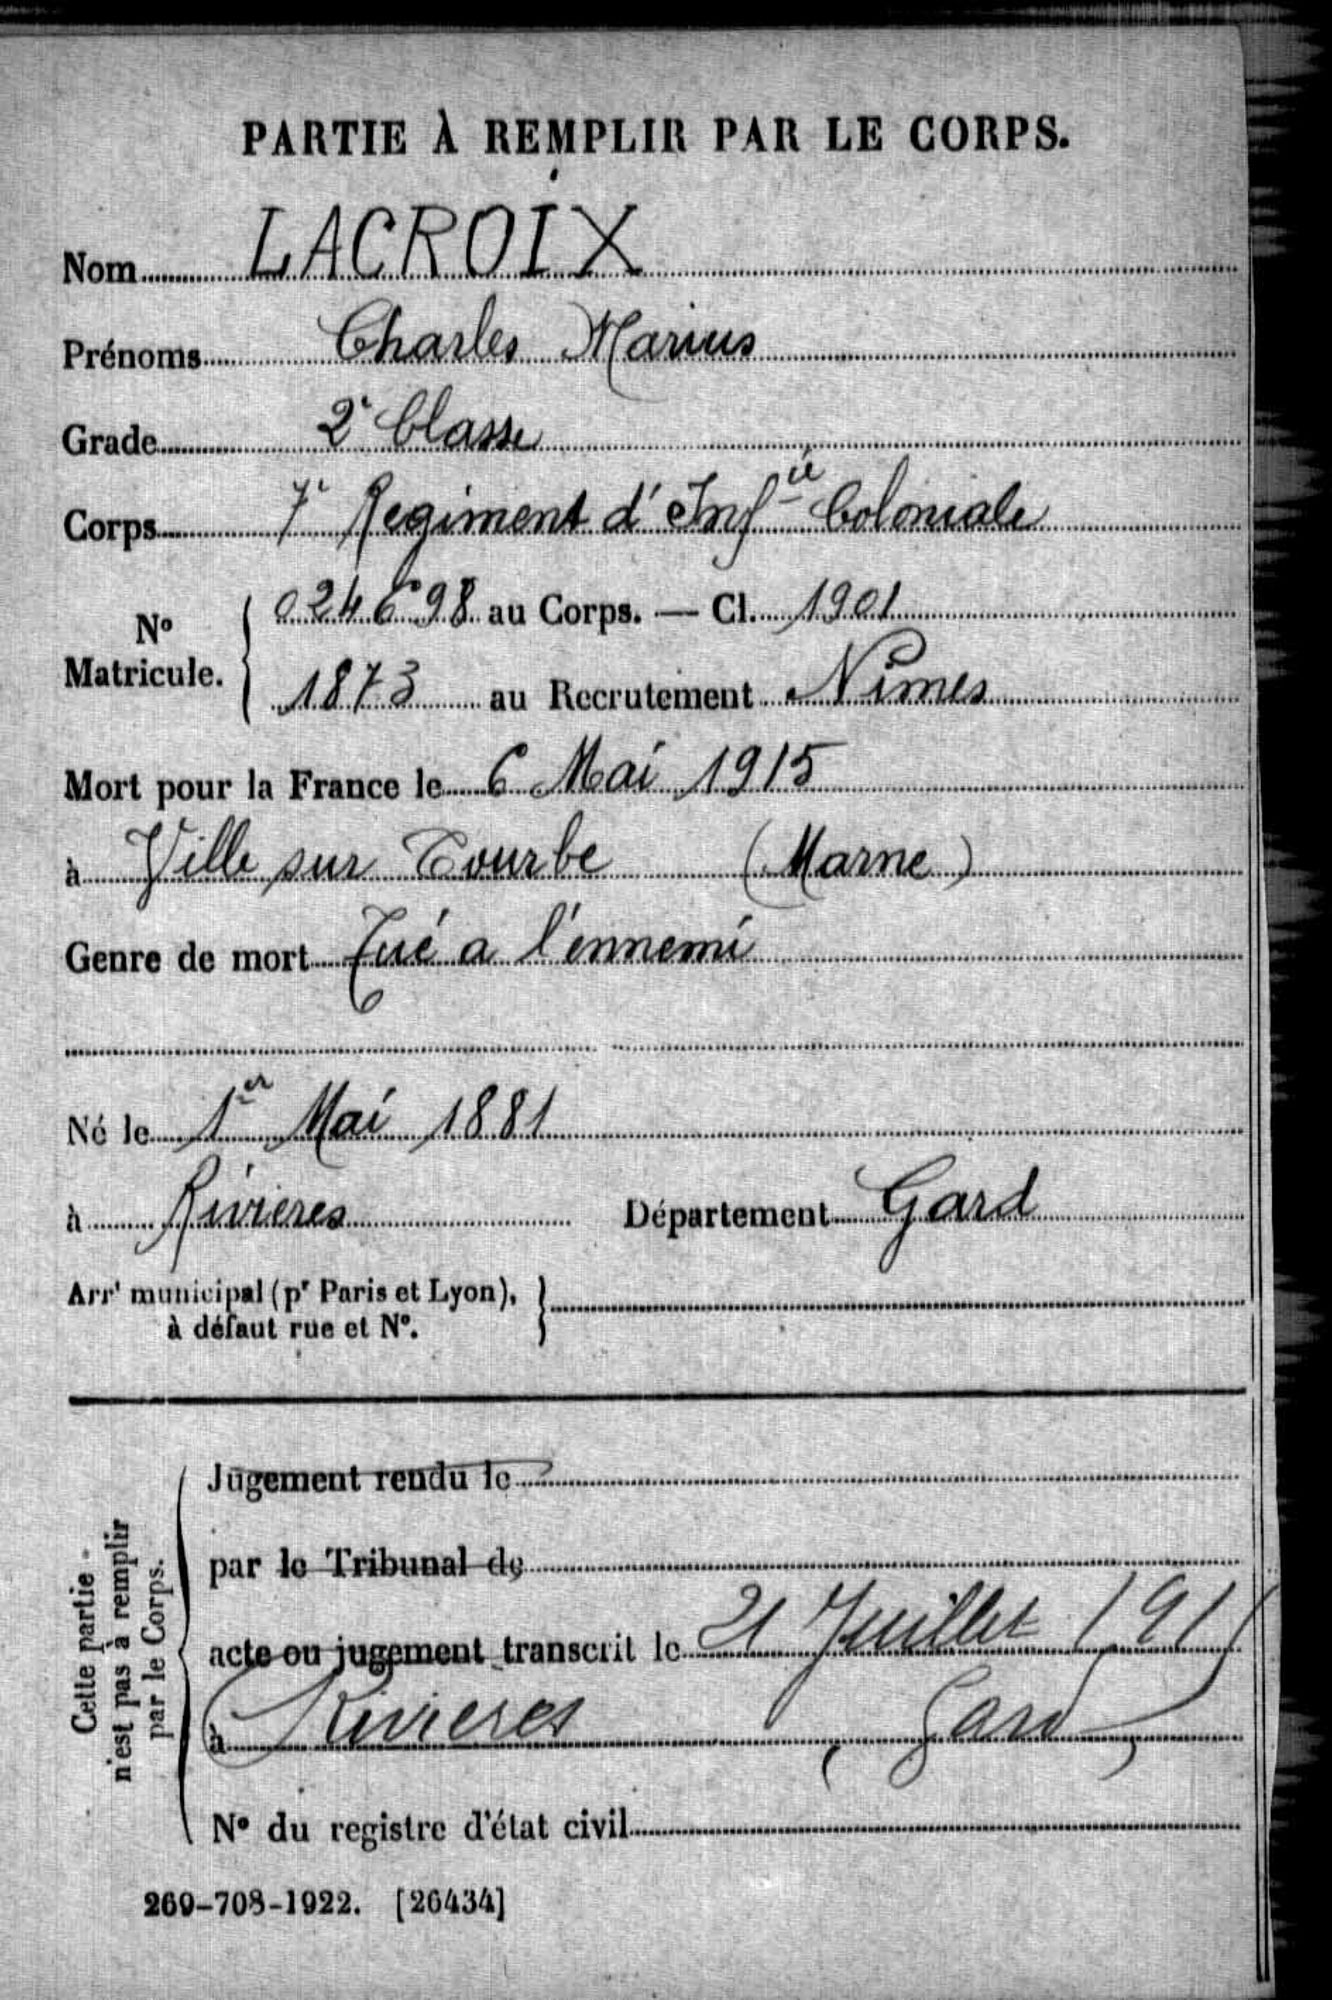 PARTIE À REMPLIR PAR LE CORPS.
Nom LACROIX
Prénoms Charles Marius
Grade 2e Classe
Corps 7e Regiment d'Infie Coloniale
No Matricule. { 024698 au Corps. — Cl. 1901
1873 au Recrutement Nimes
Mort pour la France le 6 Mai 1915
à Ville sur Tourbe (Marne)
Genre de mort Tué a l'ennemi
Né le 1er Mai 1881
à Rivieres Département Gard
Arrt municipal (pr Paris et Lyon),
à défaut rue et No. }
Cette partie
n'est pas à remplir
par le Corps.
Jugement rendu le
par le Tribunal de
acte ou jugement transcrit le 21 Juillet 191
à Rivieres (Gard)
No du registre d'état civil
269-708-1922. [26434]